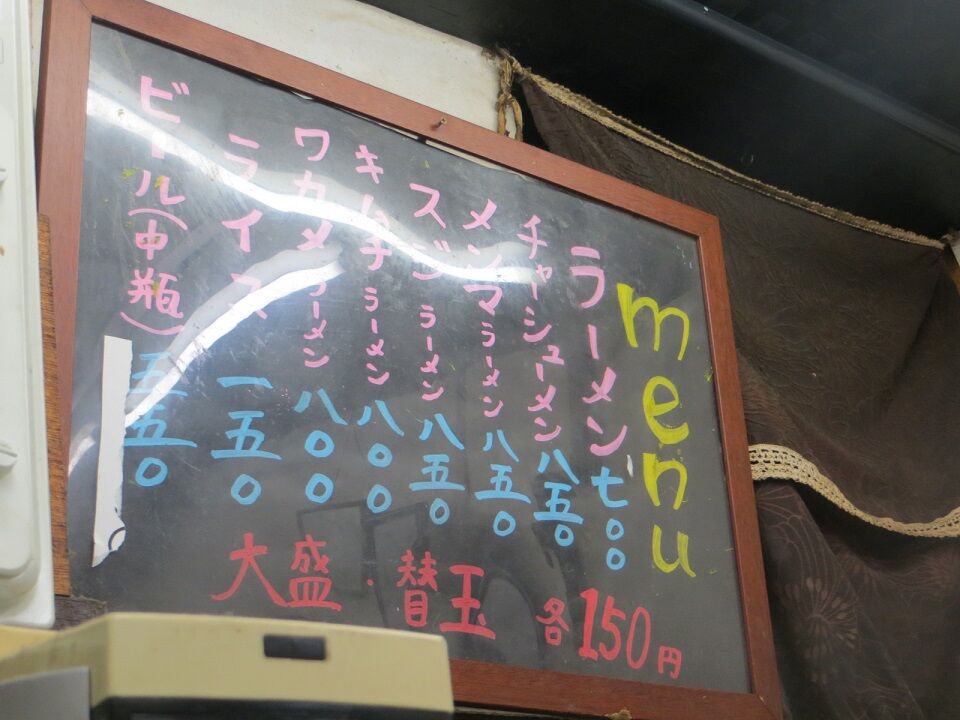 menu
ラーメン 七〇〇
チャーシューメン 八五〇
メンマラーメン 八五〇
スジラーメン 八五〇
キムチラーメン 八〇〇
ワカメラーメン 八〇〇
ライス 一五〇
ビール(中瓶) 五五〇
大盛・替玉 各150円